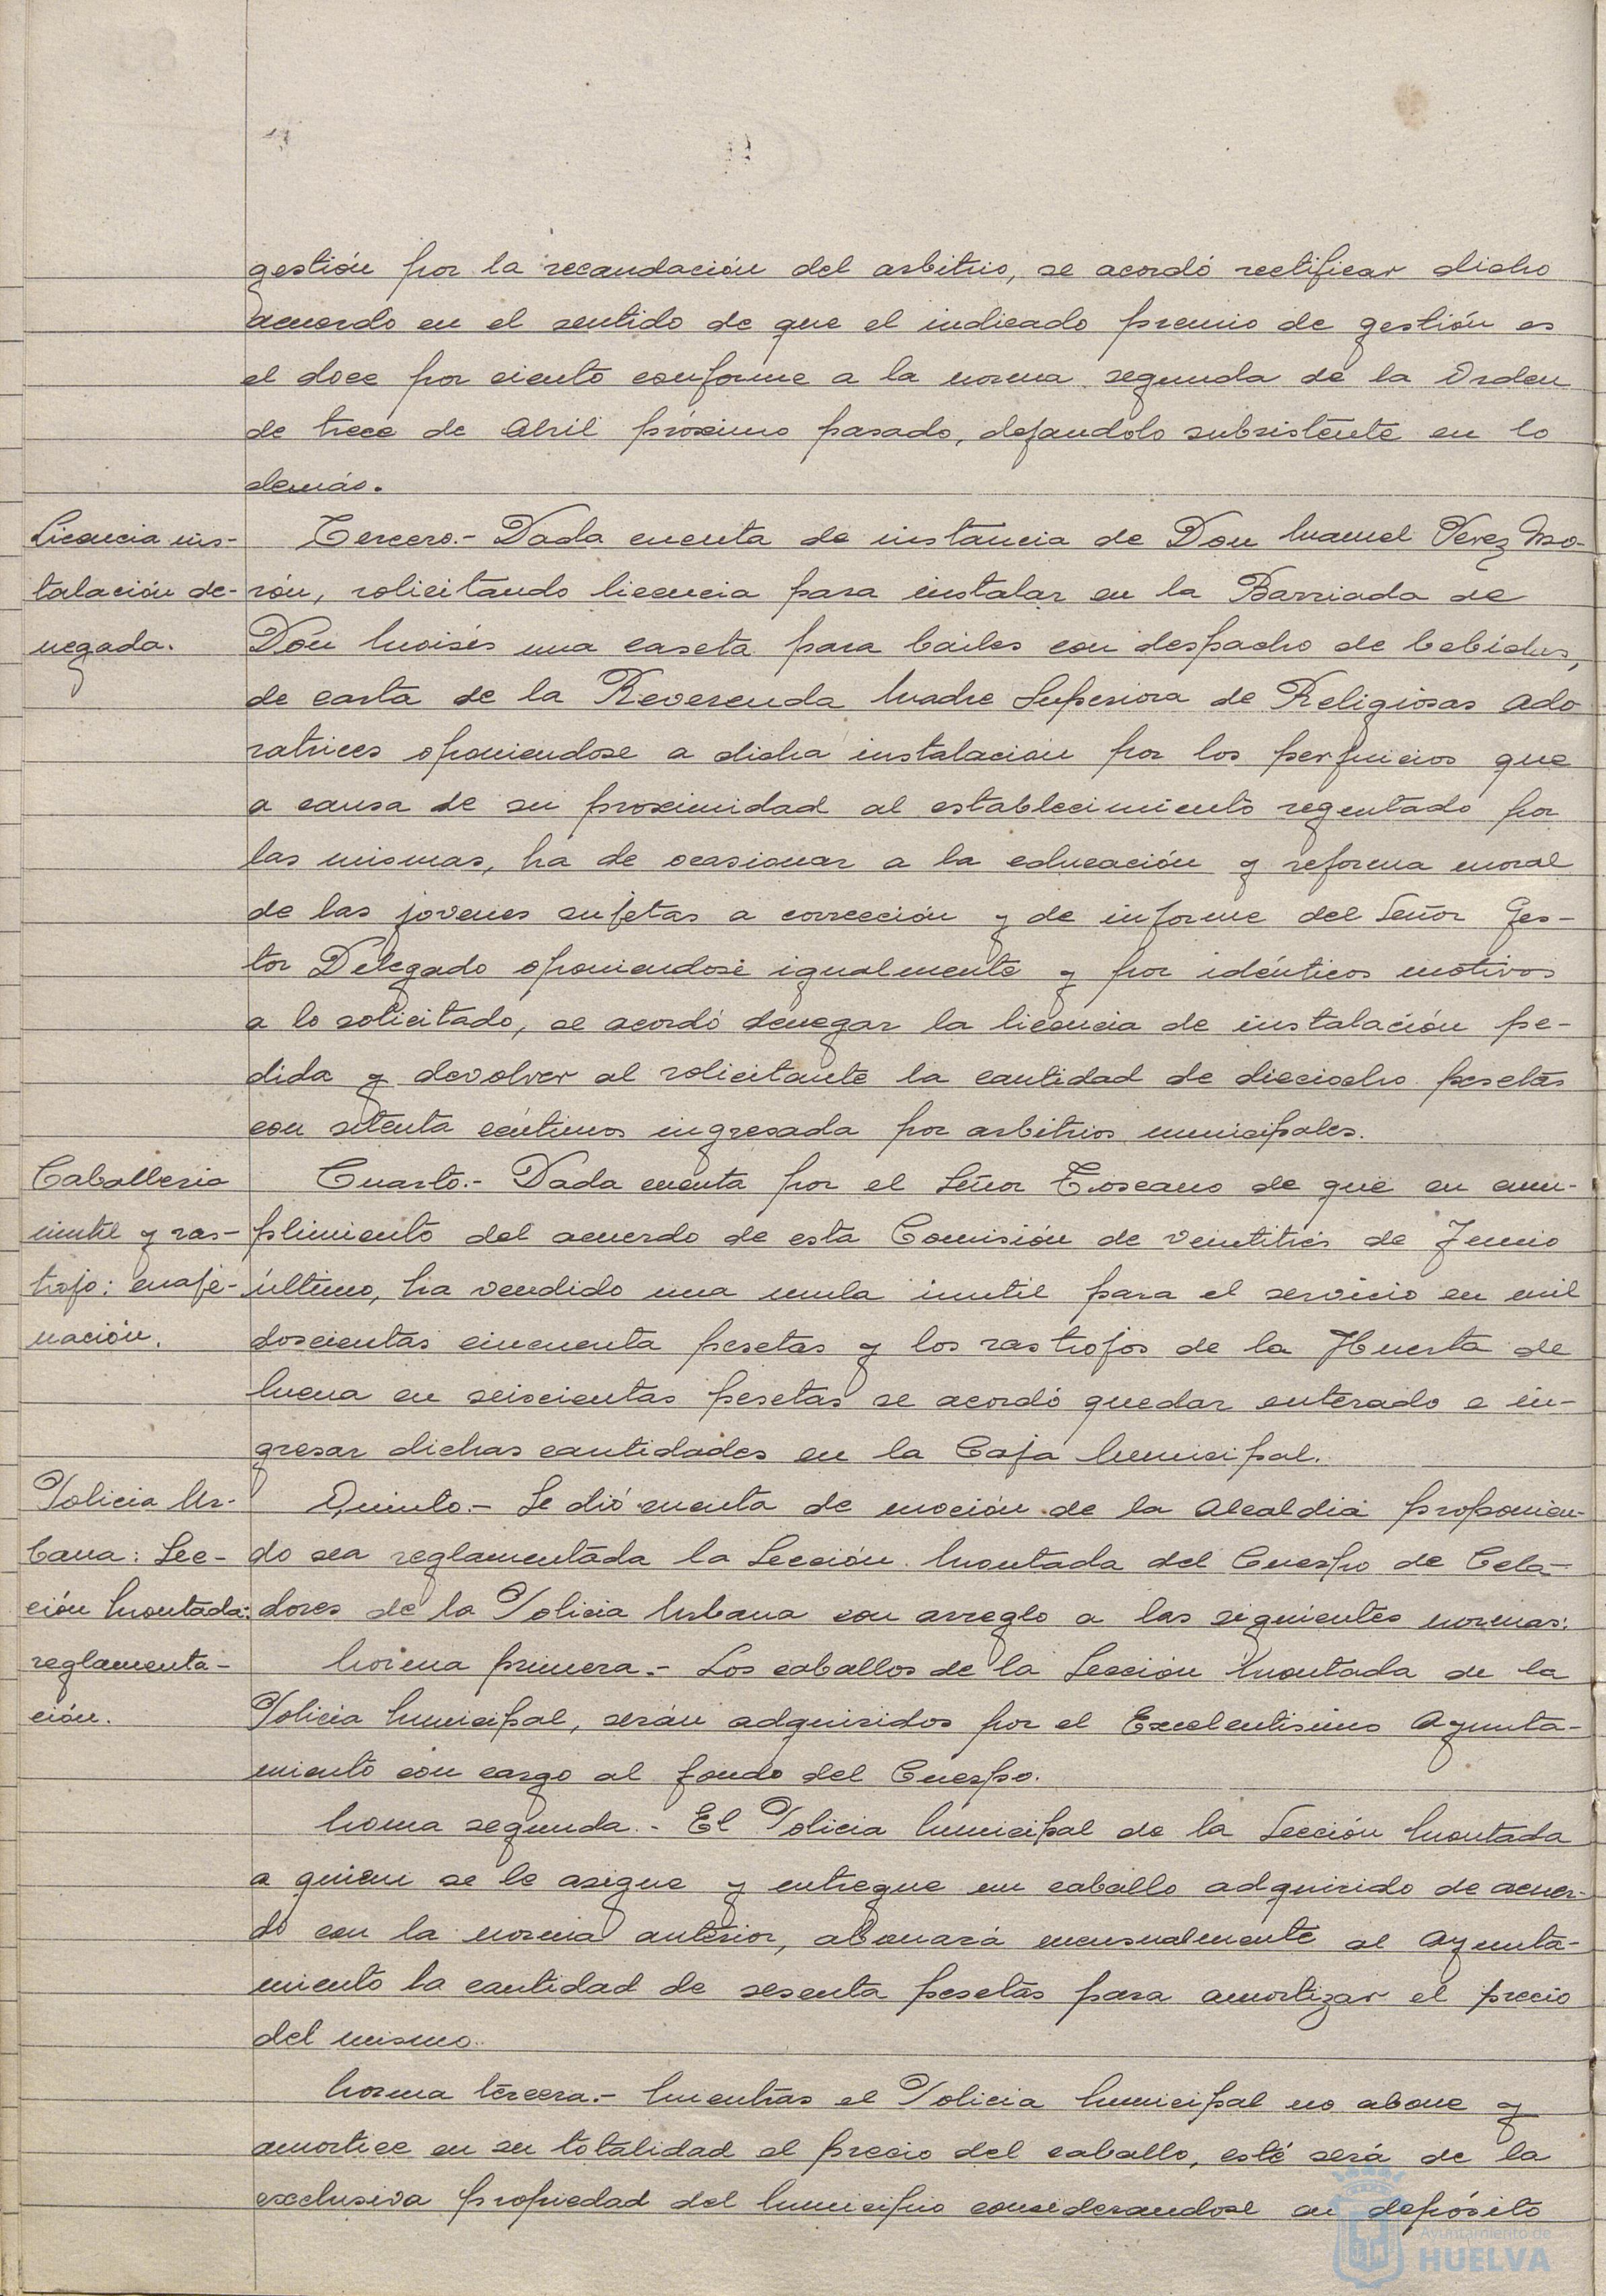 gestión por la recaudación del arbitrio, se acordó rectificar dicho
acuerdo en el sentido de que el indicado premio de gestión es
el doce por ciento conforme a la norma segunda de la Orden
de trece de Abril próximo pasado, dejandolo subsistente en lo
demás.
Licencia ins-
talación de-
negada.
Tercero.- Dada cuenta de instancia de Don Manuel Perez Mo-
rón, solicitando licencia para instalar en la Barriada de
Don Moisés una caseta para bailes con despacho de bebidas,
de carta de la Reverenda Madre Superiora de Religiosas Ado
ratrices oponiendose a dicha instalación por los perjuicios que
a causa de su proximidad al establecimiento regentado por
las mismas, ha de ocasionar a la educación y reforma moral
de las jovenes sujetas a corrección y de informe del Señor Ges-
tor Delegado oponiendose igualmente y por idénticos motivos
a lo solicitado, se acordó denegar la licencia de instalación pe-
dida y devolver al solicitante la cantidad de dieciocho pesetas
con setenta céntimos ingresada por arbitrios municipales.
Caballeria
inutil y ras-
trojo: enaje-
nación.
Cuarto.- Dada cuenta por el Señor Toscano de que en cum-
plimiento del acuerdo de esta Comisión de veintitrés de Junio
último, ha vendido una mula inutil para el servicio en mil
doscientas cincuenta pesetas y los rastrojos de la Huerta de
Mena en seiscientas pesetas se acordó quedar enterado e in-
gresar dichas cantidades en la Caja Municipal.
Policia Ur-
bana: Sec-
ción Montada:
reglamenta-
ción.
Quinto.- Se dió cuenta de moción de la Alcaldia proponien-
do sea reglamentada la Sección Montada del Cuerpo de Cela-
dores de la Policia Urbana con arreglo a las siguientes normas:
Norma primera.- Los caballos de la Sección Montada de la
Policia Municipal, serán adquiridos por el Excelentisimo Ayunta-
miento con cargo al fondo del Cuerpo.
Norma segunda.- El Policia Municipal de la Sección Montada
a quien se le asigne y entregue un caballo adquirido de acuer-
do con la norma anterior, abonará mensualmente al Ayunta-
miento la cantidad de sesenta pesetas para amortizar el precio
del mismo.
Norma tercera.- Mientras el Policia Municipal no abone y
amortice en su totalidad el precio del caballo, esté será de la
exclusiva propiedad del Municipio considerandose en depósito
Ayuntamiento de
HUELVA